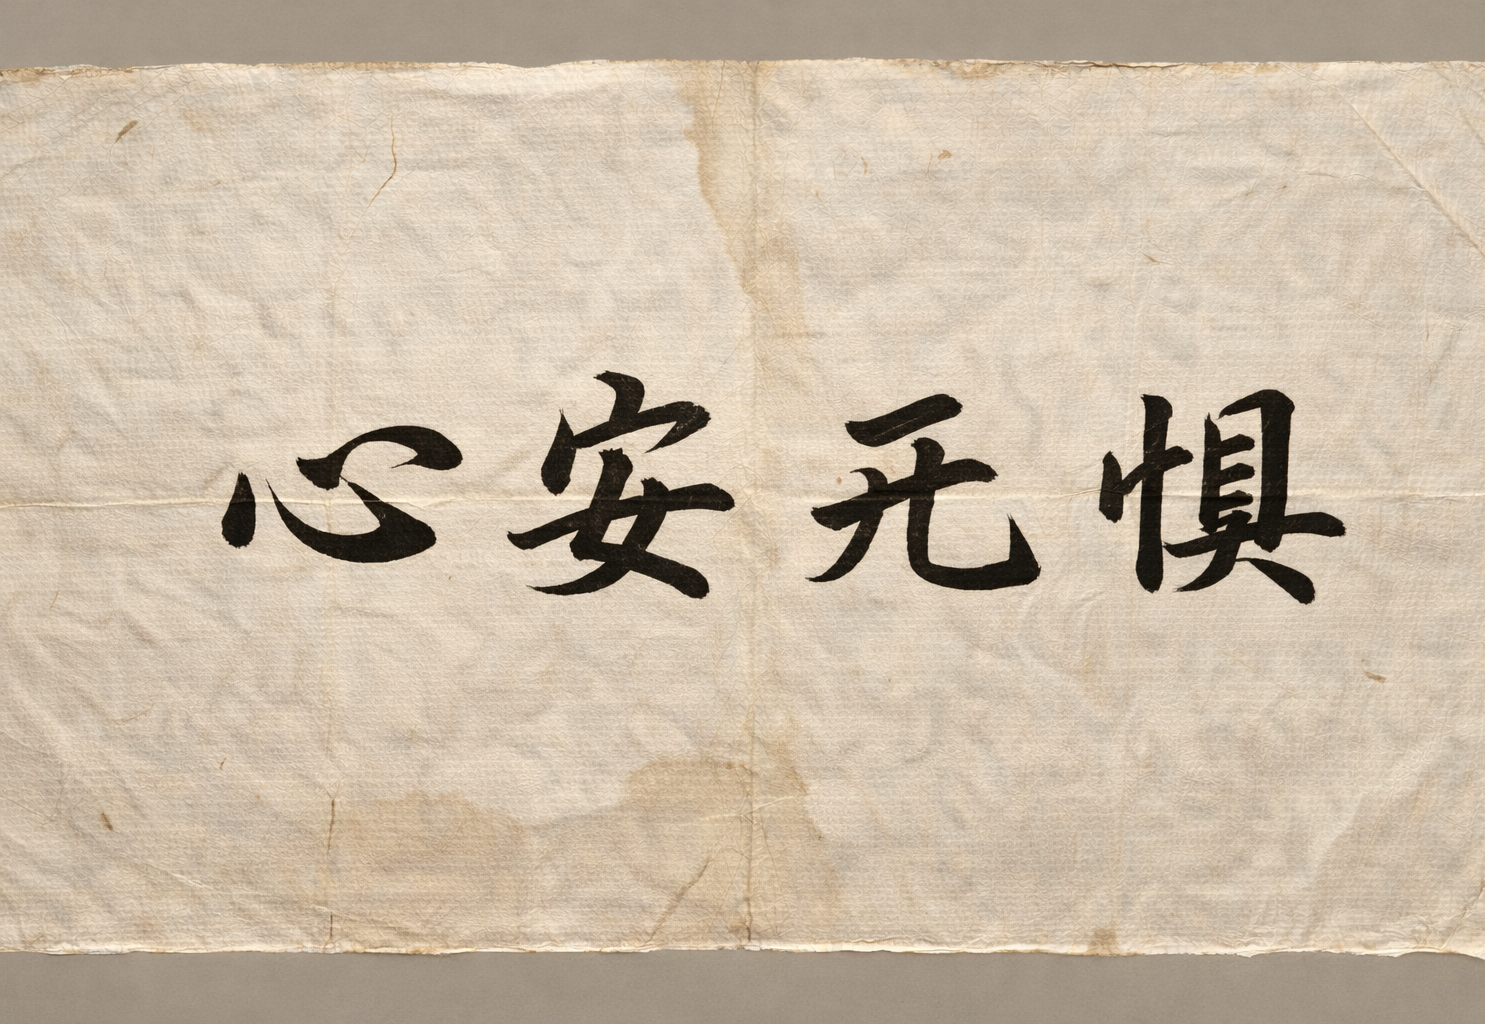 心安无惧